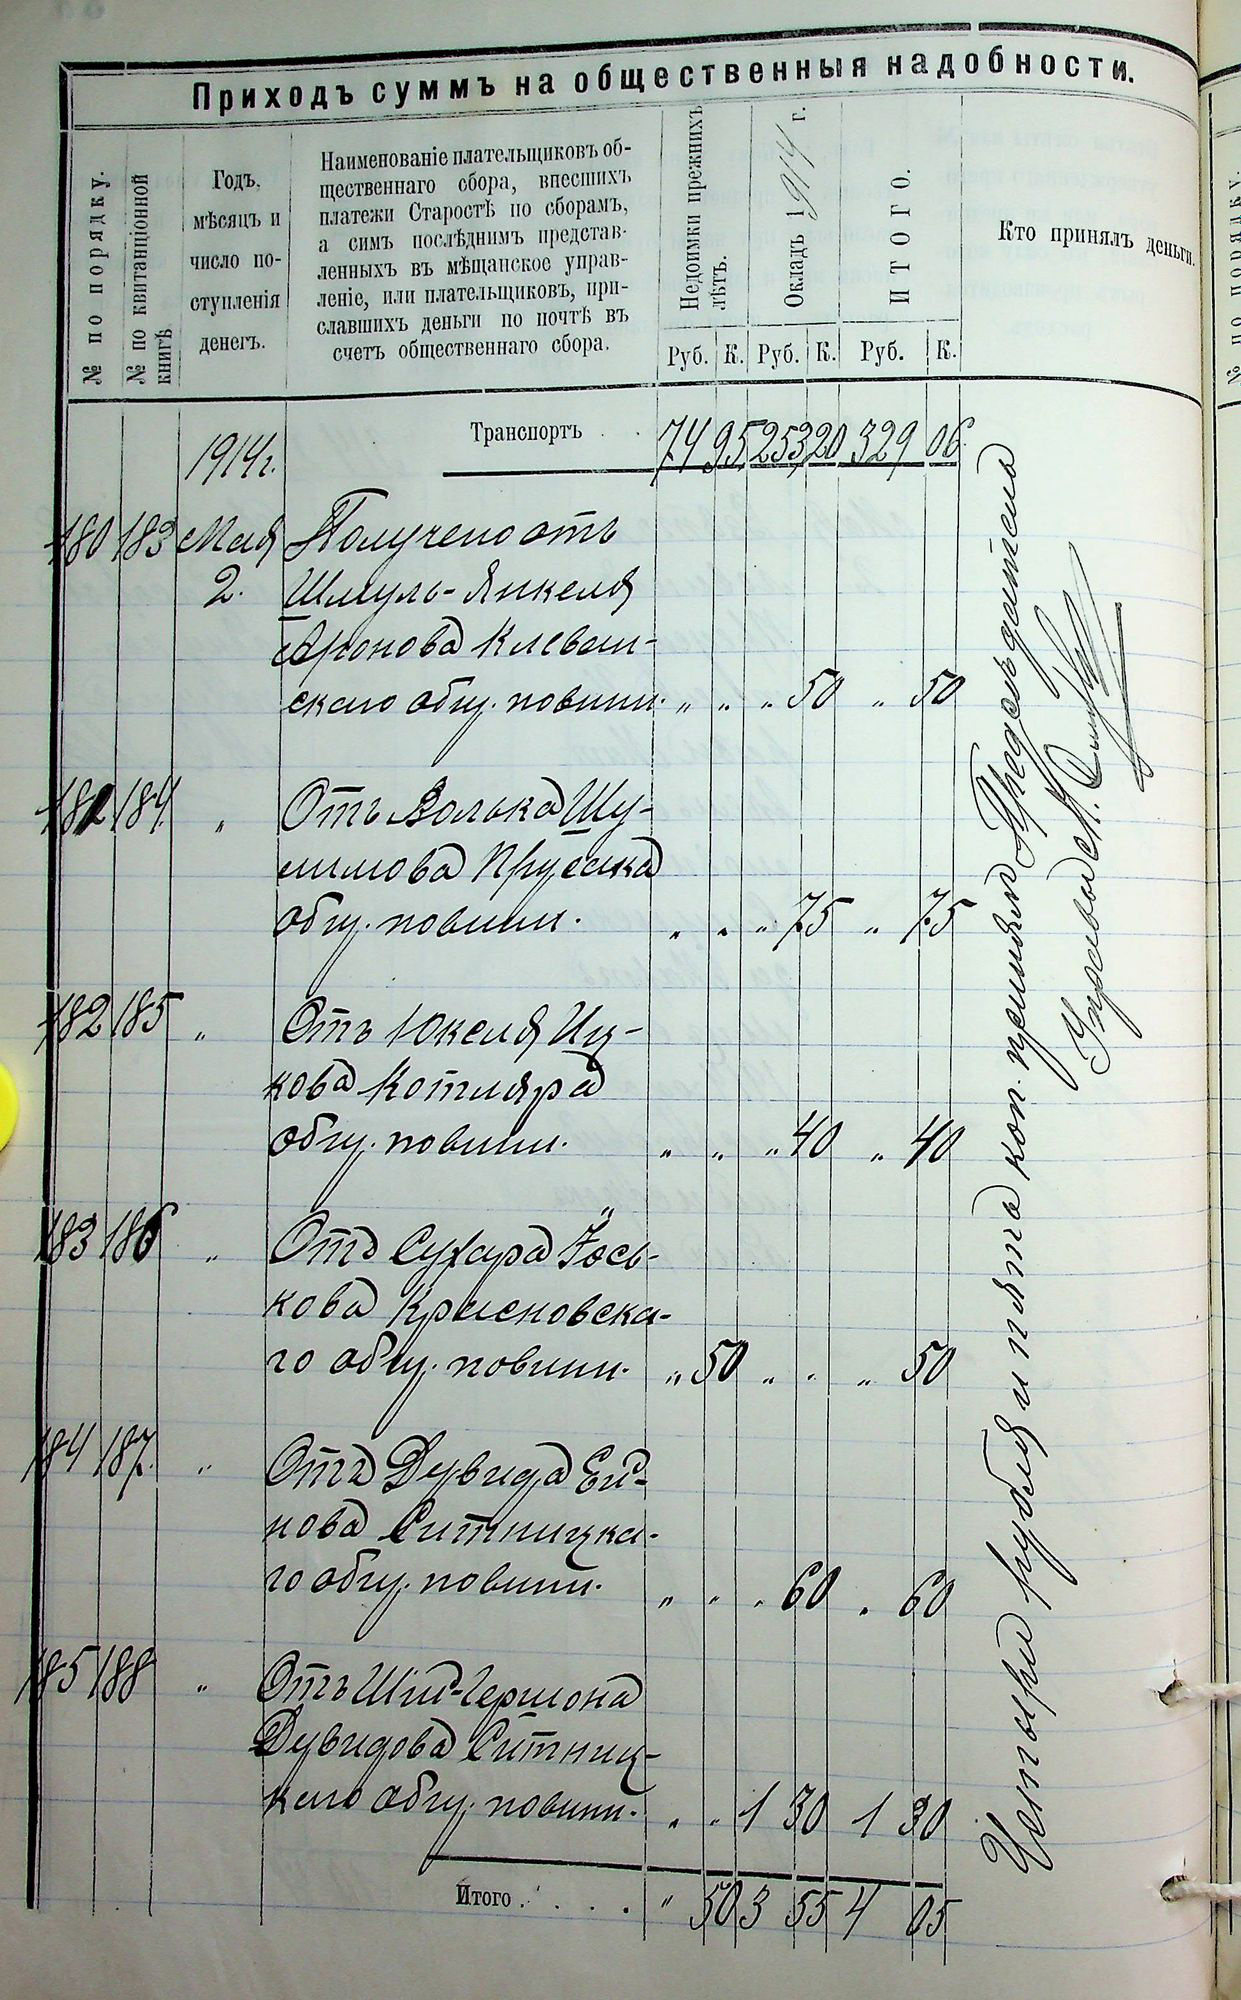 Приходъ суммъ на общественныя надобности.
№ по порядку.
№ по квитанціонной
книгѣ
Годъ,
мѣсяцъ и
число по-
ступленія
денегъ.
Наименованіе плательщиковъ об-
щественнаго сбора, внесшихъ
платежи Старостѣ по сборамъ,
а симъ послѣднимъ представ-
ленныхъ въ мѣщанское управ-
леніе, или плательщиковъ, при-
славшихъ деньги по почтѣ въ
счетъ общественнаго сбора.
Недоимки прежнихъ
лѣтъ.
Окладъ 1914 г.
ИТОГО.
Кто принялъ деньги.
Руб. К. Руб. К. Руб. К.
1914 г. Транспортъ . . 74 95 253 20 329 06
180 183 Мая Получено отъ
2. Шмуль-Янкеля
Аронова Клеван-
скаго общ. повинн. „ „ „ 50 „ 50
182 184 „ Отъ Волька Шу-
лимова Прусака
общ. повинн. „ „ „ 75 „ 75
182 185 „ Отъ Юкеля Иц-
кова Котляра
общ. повинн. „ „ „ 40 „ 40
183 186 „ Отъ Сухара Іось-
кова Красновска-
го общ. повинн. „ 50 „ „ „ 50
184 187. „ Отъ Дувида Ей-
нова Ситницка-
го общ. повинн. „ „ „ 60 „ 60
185 188 „ Отъ Шіи-Гершона
Дувидова Ситниц-
каго общ. повинн. „ „ 1 30 1 30
Итого . . . . „ 50 3 55 4 05
Четыри рубля и пять коп. принялъ Предсѣдатель
Управы